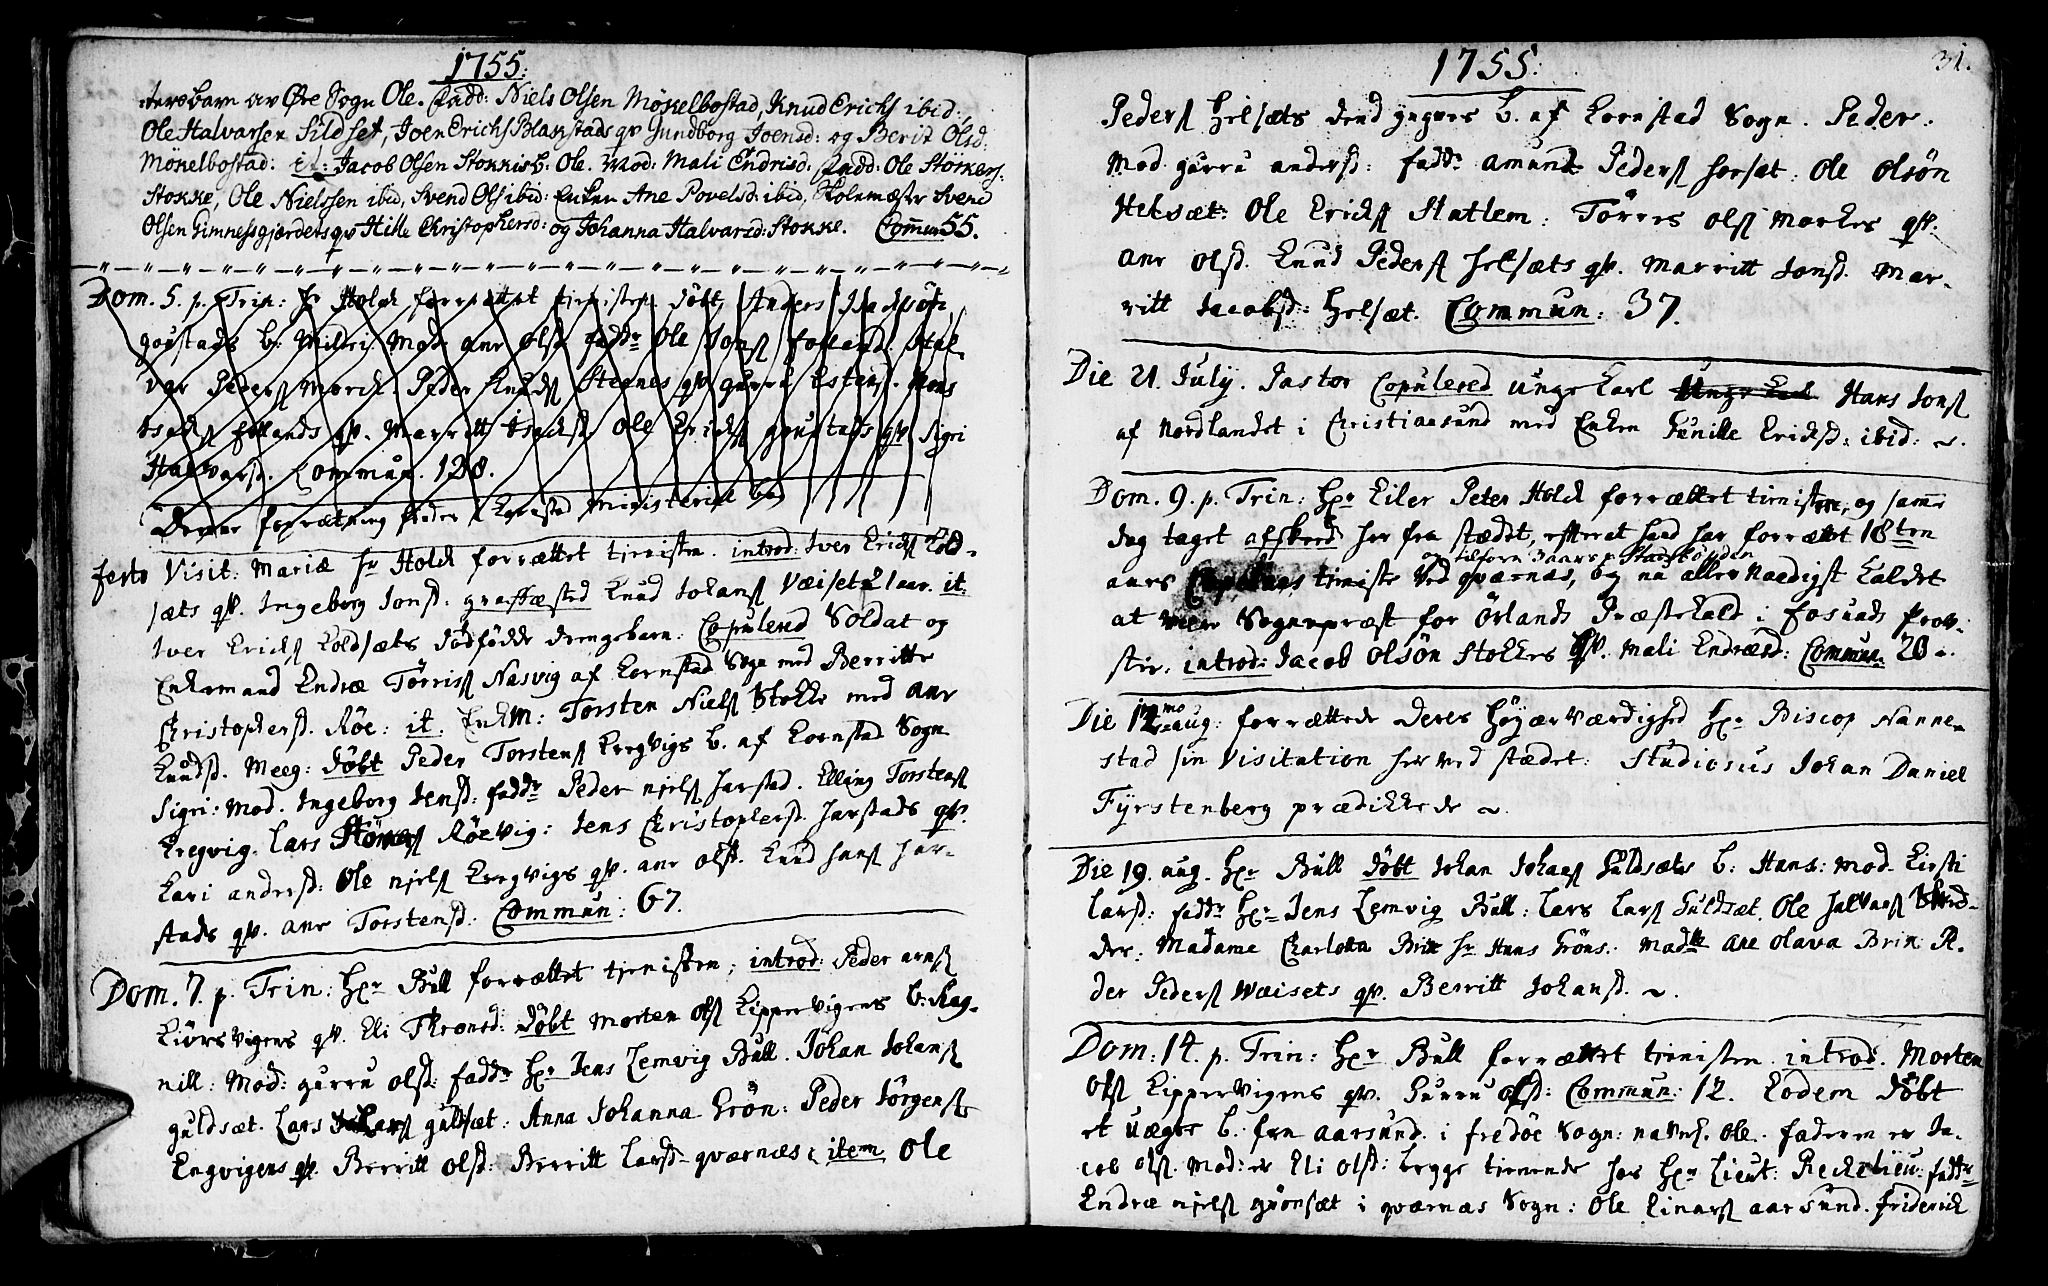 1755.
ters barn av Øre Sogn Ole. fadd: Niels Olsen Mökelbostad, Knud Erichs ibid:,
Ole Halvarsen Sildset, Joen Erichs Blakstads qv Gundborg Joensd: og Berit Olsd:
Mökelbostad: it: Jacob Olsen Stokkis b. Ole. Mod: Mali Endrisd. fadd: Ole Störkers:
Stokke, Ole Nielssen ibid, Svend Ols ibid: Enken Ane Povelsd: ibid, Skolemæster Svend
Olsen Gimnessgjærdets qv Hille Christophersd: og Johanna Halvarsd: Stokke. Commun 55.
Dom. 5. p. Trin: Hr Holck forrættet tienisten döbt Anders Isachsön
goustads b: Mildri Mod ane Olsd. faddr Ole Jons folland. Hal-
var Peders Morck. Peder Knuds Stegnes qv. gurru Estens. Mons
Isachs follands qv. Marritt Isachsd Ole Erichs goustads qv Sigri
Halvarsd. Commun. 128.
Denne forrætning finder i Kornstad Ministerial bog
festo Visit: Mariæ Hr Holck forrættet tienisten. introd: Iver Erichs Kold-
sæts qv. Ingeborg Jonsd: graffæsted Knud Johans Væiset 21 aar. it.
Iver Erichs Koldsæts dödfödde drengebarn: Copulered Soldat og
Enkemand Endræ Törris Nasvig af Kornstad Sogn med Berritte
Christophersd. Röe: it. EnkM: Torsten Niels Stokke med ane
Knudsd. Meeg: döbt Peder Torstens Kregvigs b. af Kornstad Sogn
Sigri: Mod. Ingeborg Jensd: faddr Peder njels harstad. Elling Torstens
Kregvig. Lars Röevig: Jens Christophers. harstads qv.
Kari andersd: Ole njels Kregvigs qv. ane olsd. Knud hans har-
stads qv. ane Torstensd. Commun: 67.
Dom. 7. p. Trin: Hr Bull forrættet tjenisten; introd: Peder arns
Kiörsvigens qv. Eli Thronsd: döbt Morten Ols Kippervigens b: Rag-
nill: Mod: gurru olsd: faddr Hr Jens Lemvig Bull. Johan Johans
guldsæt. Lars Lars guldsæt: Anna Johanna Grön: Peder Jörgens
Engvigens qv. Berritt olsd: Berritt Larsd qværnæs: item Ole
1755.
31.
Peders Helsæts dend yngres b. af Kornstad Sogn. Peder.
Mod gurru andersd: faddr amund Peders horsæt: Ole Olsön
Helsæt: Ole Erichs Hatlem: Törres ols Morkes qv.
ane olsd. Knud Peders helsæts qv. Marritt Jonsd. Mar-
ritt Jacobsd: Helsæt. Commun: 37.
Die 21. July. Pastor Copulered unge Karl Unge Karl Hans Jons
af Nordlandet i Christiansund med Enken Gunille Erichsd: ibid:
Dom. 9. p. Trin: Hr Eiler Peter Holck forrættet tienisten, og samme
dag taget afskeed her fra stædet, efterat hand har forrættet 18ten
og tilforn 3 aars
aars tieniste ved qværnæs, og nu aller naadigst Kaldet
at være Sognepræst for Örlands Præstekald i fosunds Prov-
stie. introd: Jacob Olsön Stokkes qv. Mali Endræsd: Commun. 20.
Die 12mo aug: forrættede deres Höyærværdighed Hr Biscop Nanne-
stad sin Visitation her ved stædet: Studiosus Johan Daniel
Fyrstenberg prædikkede
Die 19. aug. Hr Bull döbt Johan Johans Guldsæts b: Hans: Mod Kirsti
Larsd: faddr Hr Jens Lemvig Bull: Lars Lars Guldsæt. Ole halvars
der: Madame Charlotta Britt Hr Hans Gröns: Madlle ane olava Brin
der Peders Wæisets qv. Berritt Johansd.
Dom: 14. p. Trin: Hr Bull forrættet tienisten introd. Morten
Ols Kippervigens qv. Gurru olsd: Commun: 12. Eodem döbt
et uægte b. fra aarsund i fredöe Sogn: nafnl. Ole. faderen er Ja-
cob ols. Mod: er Eli olsd: begge tienende hos Hr Lieut: faddr
Endræ njels grönsæt i qværnæs Sogn: Ole Einars aarsund. friderich